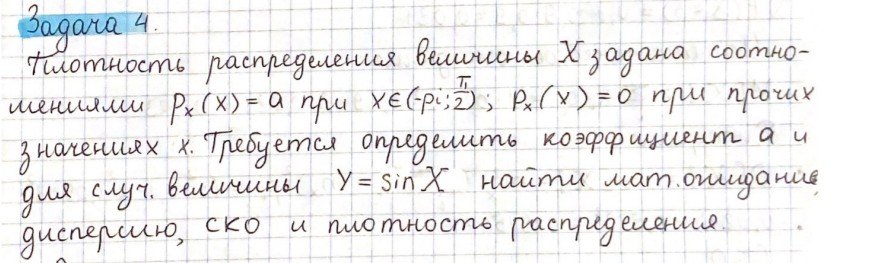 Задача 4.
Плотность распределения величины X задана соотно-
шениями pₓ(x) = a при x∈(-pi; π/2); pₓ(x) = 0 при прочих
значениях x. Требуется определить коэффициент a и
для случ. величины Y = sin X найти мат. ожидание,
дисперсию, СКО и плотность распределения.